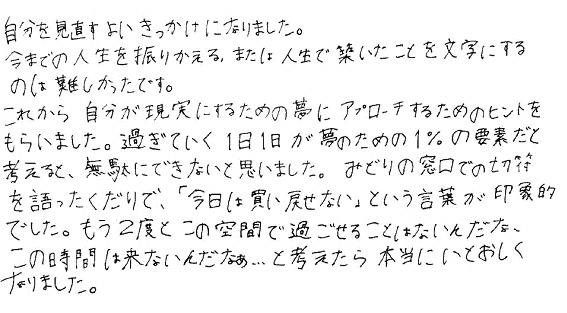 自分を見直すよいきっかけになりました。
今までの人生を振りかえる、または人生で築いたことを文字にする
のは難しかったです。
これから自分が現実にするための夢にアプローチするためのヒントを
もらいました。過ぎていく1日1日が夢のための1%の要素だと
考えると、無駄にできないと思いました。みどりの窓口での切符
を語ったくだりで、「今日は買い戻せない」という言葉が印象的
でした。もう2度とこの空間で過ごせることはないんだな、
この時間は来ないんだなぁ…と考えたら本当にいとおしく
なりました。